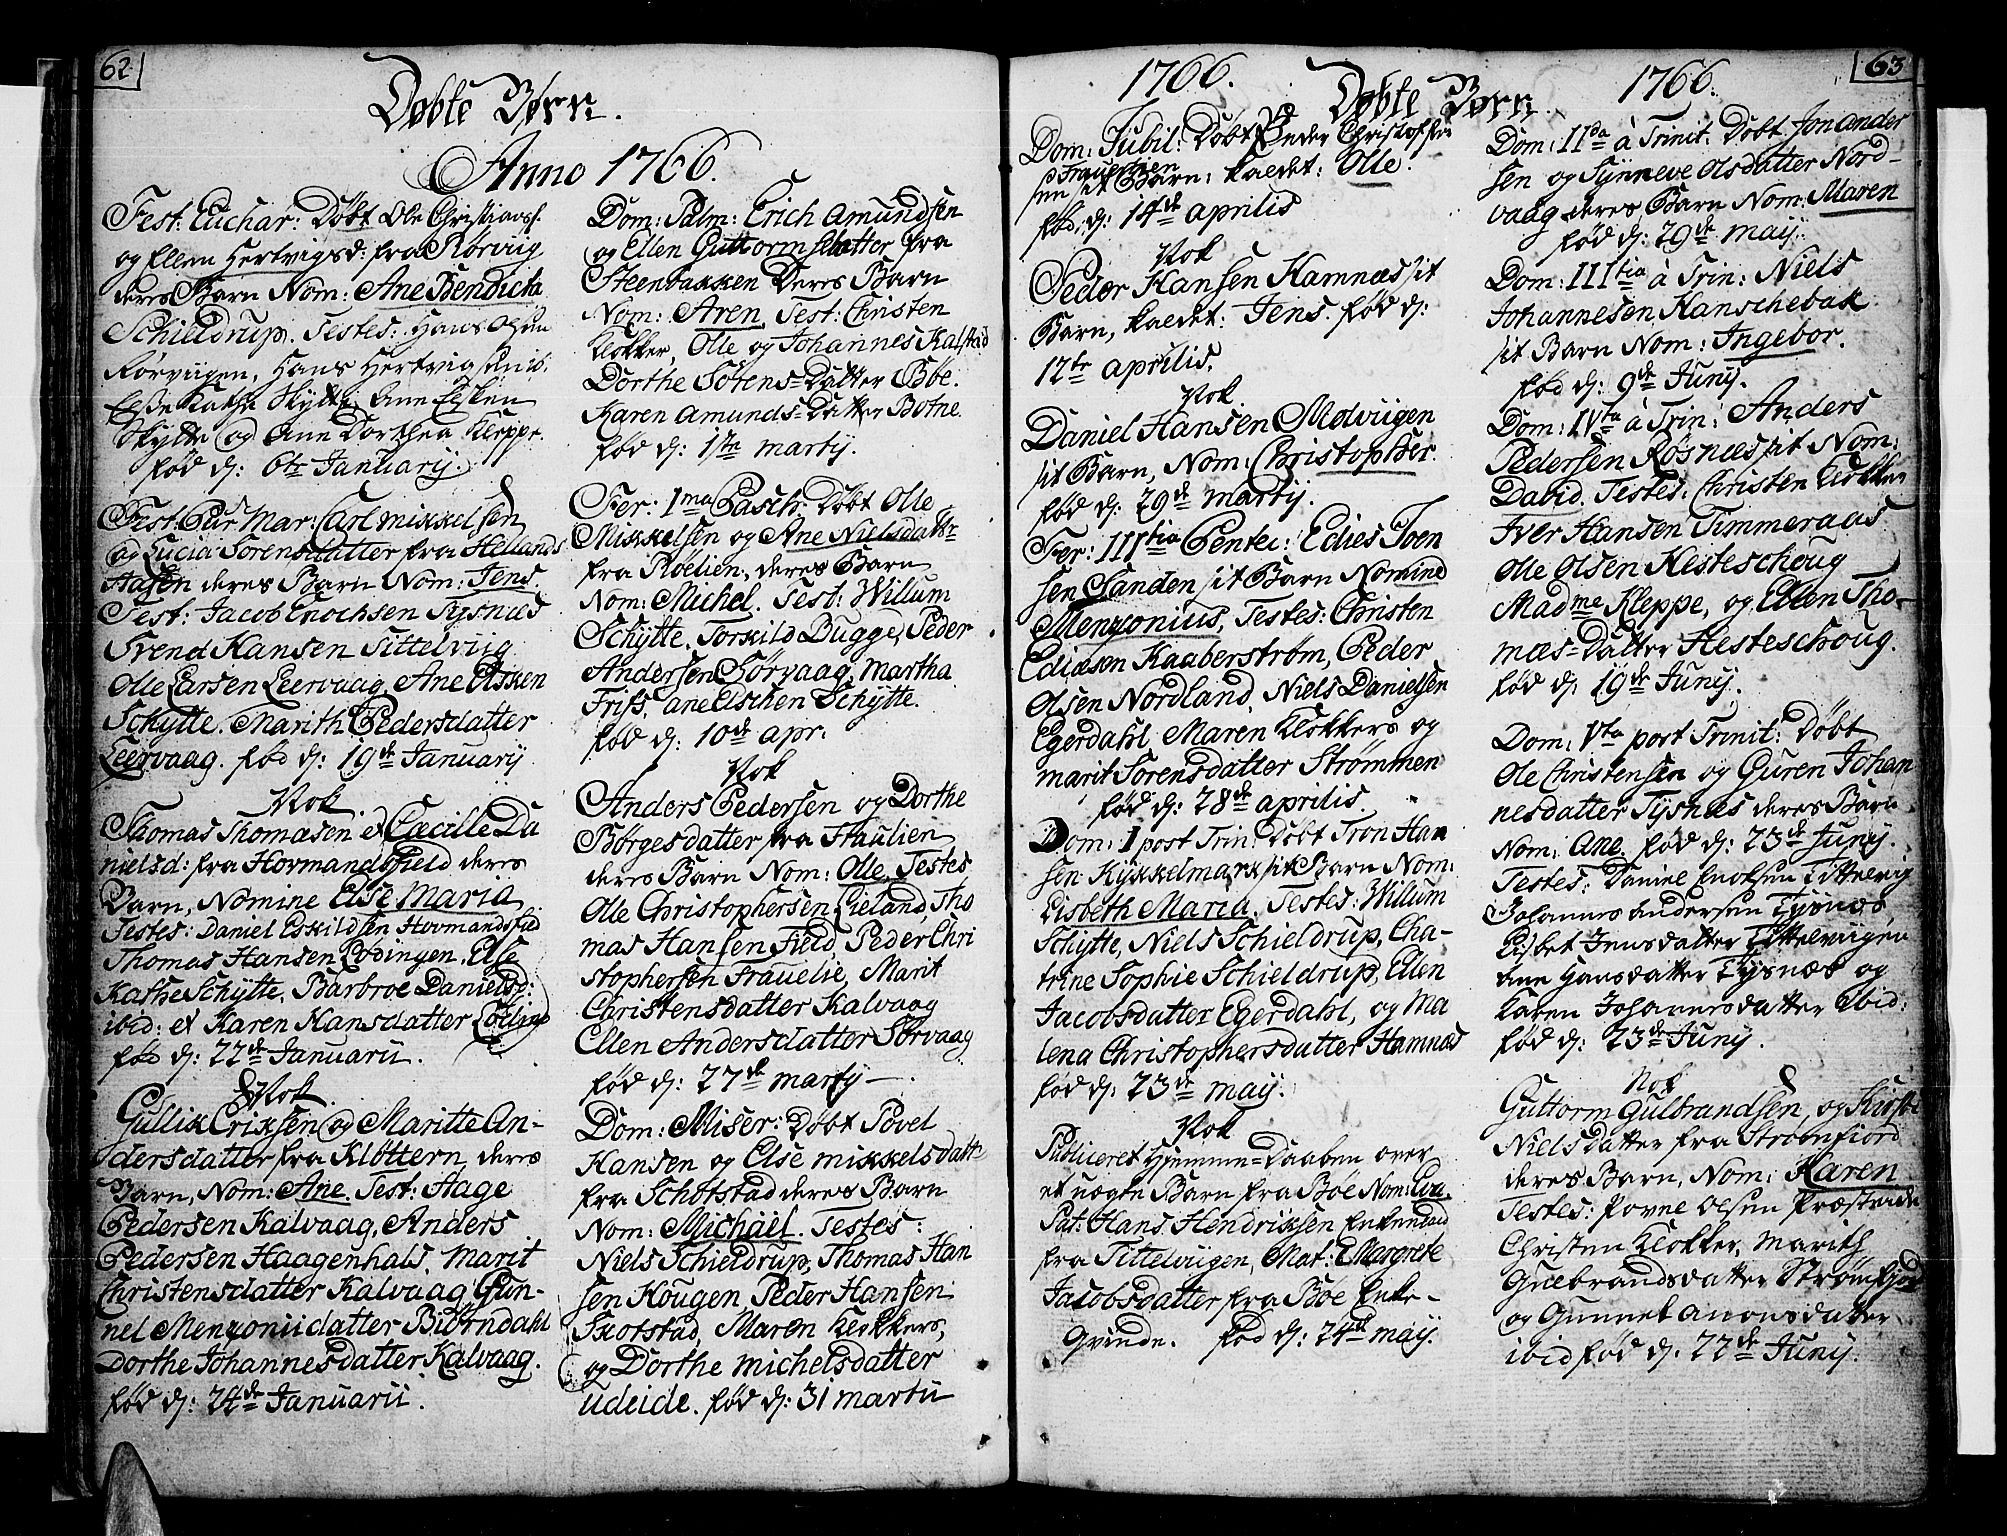 62
Døbte Børn.
Anno 1766.
Fest: Euchar: Døbt Ole Christians:
og Ellen Hertvigsd: fra Rørviig
deres Barn Nom: Ane Bendicta
Schieldrup. Testes: Hans Olsen
Rørviigen, Hans Hertvigsen ib.
Else Kathr Skytte Ane Elsken
Skytte og Ane Dorthea Kleppe.
fød d: 6te Januarij.
Fest: Pur Mar: Carl Mikkelsen
og Lucia Sørensdatter fra Hellands
Hagen deres Barn Nom: Jens.
Test: Jacob Enochsen Tysnæs
Svend Hansen Tittelviig
Olle Larsen Leervaag, Ane Elsken
Schytte. Marith Pedersdatter
Leervaag. fød d: 19de Januarij
Nok
Thomas Thomæsen et Cæcille Da
nielsd: fra Hovmandsfield deres
Barn, Nomine Else Maria.
Testes: Daniel Eskildsen Hovmandsfield
Thomas Hansen Lødingen. Else
Kathr Schytte. Barbroe Danielsd:
ibid: et Karen Hansdatter Løding
fød d: 22de Januarii.
Nok.
Gullik Eriksen og Maritte An-
dersdatter fra Kløttern deres
Barn, Nom: Ane. Test: Aage
Pedersen Kalvaag, Anders
Pedersen Haagenhals, Marit
Christensdatter Kalvaag Gun-
nel Menzoniidatter Biørndahl
Dorthe Johannesdatter Kalvaag.
fød d: 24de Januarii.
Dom: Palm: Erich Amundsen
og Ellen Guttormsdatter fra
Steenbakken Deres Barn
Nom: Aren. Test: Christen
Klokker, Olle og Johannes Kalstad
Dorthe Sørens-Datter Bøe.
Karen Amunds-Datter Botne.
fød d: 1ste Martij.
Fer: 1ma Pasch: Døbt Olle
Mikkelsen og Ane Nielsdattr
fra Røelien, deres Barn
Nom: Michel. Test: Willum
Schytte, Torkild Bugge, Peder
Andersen Sørvaag, Martha
Friis, Ane Elschen Schytte.
fød d: 10de Apr:
Nok
Anders Pedersen og Dorthe
Børgesdatter fra Fraulien
deres Barn Nom: Olle. Testes
Olle Christophersen Lieland, Tho
mas Hansen Field, Peder Chri
stophersen Frauelie, Marit
Christensdatter Kalvaag
Ellen Andersdatter Sørvaag
fød d: 27de Martij -
Dom: Miser: Døbt Povel
Hansen og Else Mikkelsdatter
fra Schotstad deres Barn
Nom: Michäel. Testes:
Niels Schieldrup, Thomas Han
sen Hougen, Peder Hansen
Skotstad, Maren Klokkers,
og Dorthe Michelsdatter
Udeide. fød d: 31 Martii
1766. Døbte Børn. 1766.
63
Dom: Jubil: Døbt Peder Christoffer
sen Frauelien
sit Barn: kaldet: Olle.
fød, d: 14de Aprilis
Nok
Peder Hansen Hamnæs sit
Barn, kaldet: Jens. fød d:
12te Aprilis.
Nok.
Daniel Hansen Molviigen
sit Barn, Nom: Christopher.
fød d: 29de Martij.
Fer: IIItia Pentec: Edies Joen
sen Sanden sit Barn Nomine
Menzonius. Testes: Christen
Ediasen Kaaberstrøm, Peder
Olsen Nordland, Niels Danielsen
Egerdahl Maren Klokkers og
Marit Sørensdatter Strømmen
fød d: 28de Aprilis.
Dom: 1 post Trin: Døbt Tron Han
sen Kykkelmark sit Barn Nom:
Lisbeth Maria. Testes: Willum
Schytte, Niels Schieldrup, Cha-
trine Sophie Schieldrup, Ellen
Jacobsdatter Egerdahl, og Ma
lena Christophersdatter Hamnæs
fød d: 23de Maij.
Nok
Publiceret Hjemme-Daaben over
et uægte Barn fra Bøe Nom: Eva.
Pat: Hans Hendriksen Enkemand
fra Tittelviigen, Mat: E. Margrete
Jacobsdatter fra Bøe Enke-
Qvinde. fød d: 24de Maij.
Dom: IIda à Trinit: Døbt Jon Ander
sen og Synneve Olsdatter Nord-
vaag deres Barn Nom: Maren
fød d: 29de Maij.
Dom: IIItia à Trin: Niels
Johannesen Hanschebak
sit Barn Nom: Ingebor.
fød d: 9de Junij.
Dom: IVta à Trin: Anders
Pedersen Røsnæs sit Nom:
David. Testes: Christen Klokker
Iver Hansen Timmeraas
Olle Olsen Hesteschoug
Madme Kleppe, og Ellen Tho-
mæs-Datter Hesteschoug.
fød d: 19de Junij.
Dom: Vta post Trinit: Døbt
Ole Christensen og Guren Johan
nesdatter Tysnæs deres Barn
Nom: Ane. fød d: 23de Junij.
Testes: Daniel Enoksen Tittelviig
Johannes Andersen Tysnæs,
Lisbet Jensdatter Tittelviigen
Ane Hansdatter Tysnæs og
Karen Johannesdatter Ibid:
fød d: 23de Junij.
Nok
Guttorm Gulbrandsen, og Kirsti
Nielsdatter fra Strømfiord
deres Barn, Nom: Karen
Testes: Povne Olsen Præstvide
Christen Klokker, Marith
Gulbrandsdatter Strømfjord
og Gunnel Amonsdatter
ibid fød d: 22de Junij.